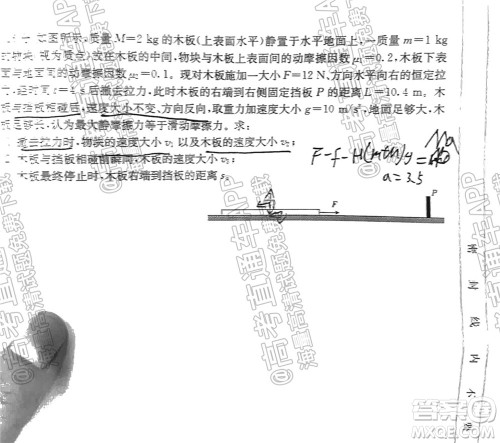 如图所示,质量M=2 kg的木板(上表面水平)静置于水平地面上,一质量m=1 kg
的物块(视为质点)放在木板的中间,物块与木板上表面间的动摩擦因数μ₁=0.2,木板下表
面与地面间的动摩擦因数μ₂=0.1。现对木板施加一大小F=12 N、方向水平向右的恒定拉
力,经时间t=4 s后撤去拉力,此时木板的右端到右侧固定挡板P的距离L=10.4 m。木
板与挡板相碰后,速度大小不变、方向反向,取重力加速度大小g=10 m/s²,地面足够大,木
板足够长,认为最大静摩擦力等于滑动摩擦力。求:
撤去拉力时,物块的速度大小v₁以及木板的速度大小v₂;
木板与挡板相碰前瞬间,木板的速度大小v₃;
木板最终停止时,木板右端到挡板的距离s。
a=3.5
F
P
密封线内不
@高考直通车APP
海量高清试题免费下载
答案圈
MXQE.COM